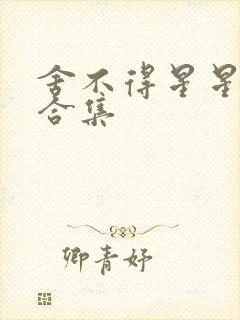 舍不得星星
合集
卿青妤